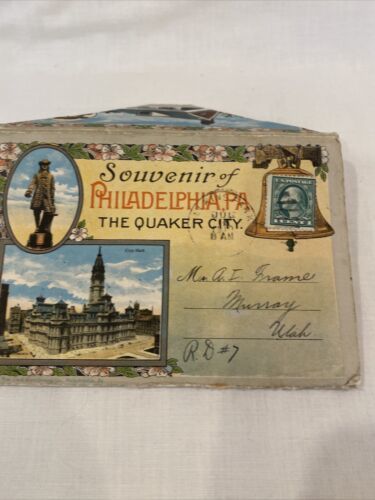 Souvenir of
PHILADELPHIA, PA.
THE QUAKER CITY.
City Hall.
JUL
8 AM
U.S. POSTAGE
1 CENT 1
Mr. A. I. Frame
Murray
Utah.
R.D #7